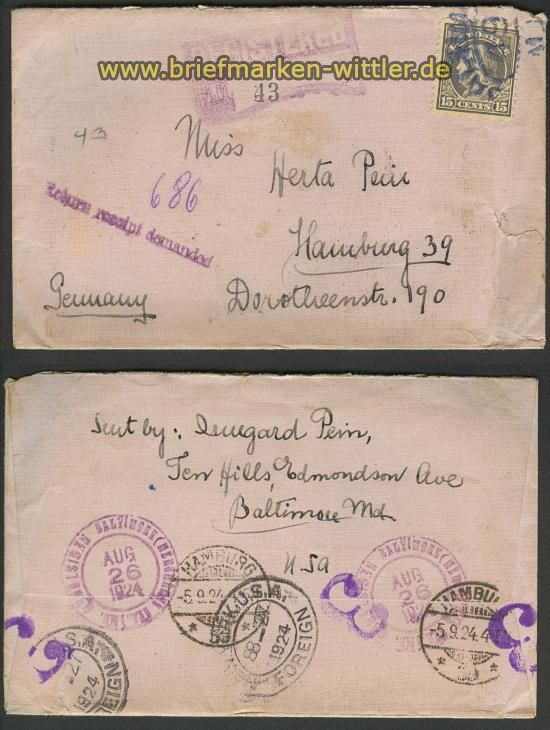 REGISTERED
www.briefmarken-wittler.de
43
15 CENTS 15
43
Miss
Herta Pein
686
Return receipt demanded
Hamburg 39
Germany
Dorotheenstr. 190
Sent by: Irmgard Pein,
Ten Hills, Edmondson Ave
Baltimore Md.
USA
REGISTERED BALTIMORE
AUG
26
1924
HAMBURG
-5.9.24
U.S.A.
8-28
1924
FOREIGN
BALTIMORE
AUG
26
1924
HAMBU
-5.9.24.4
S.A.
-27
1924
EIGN